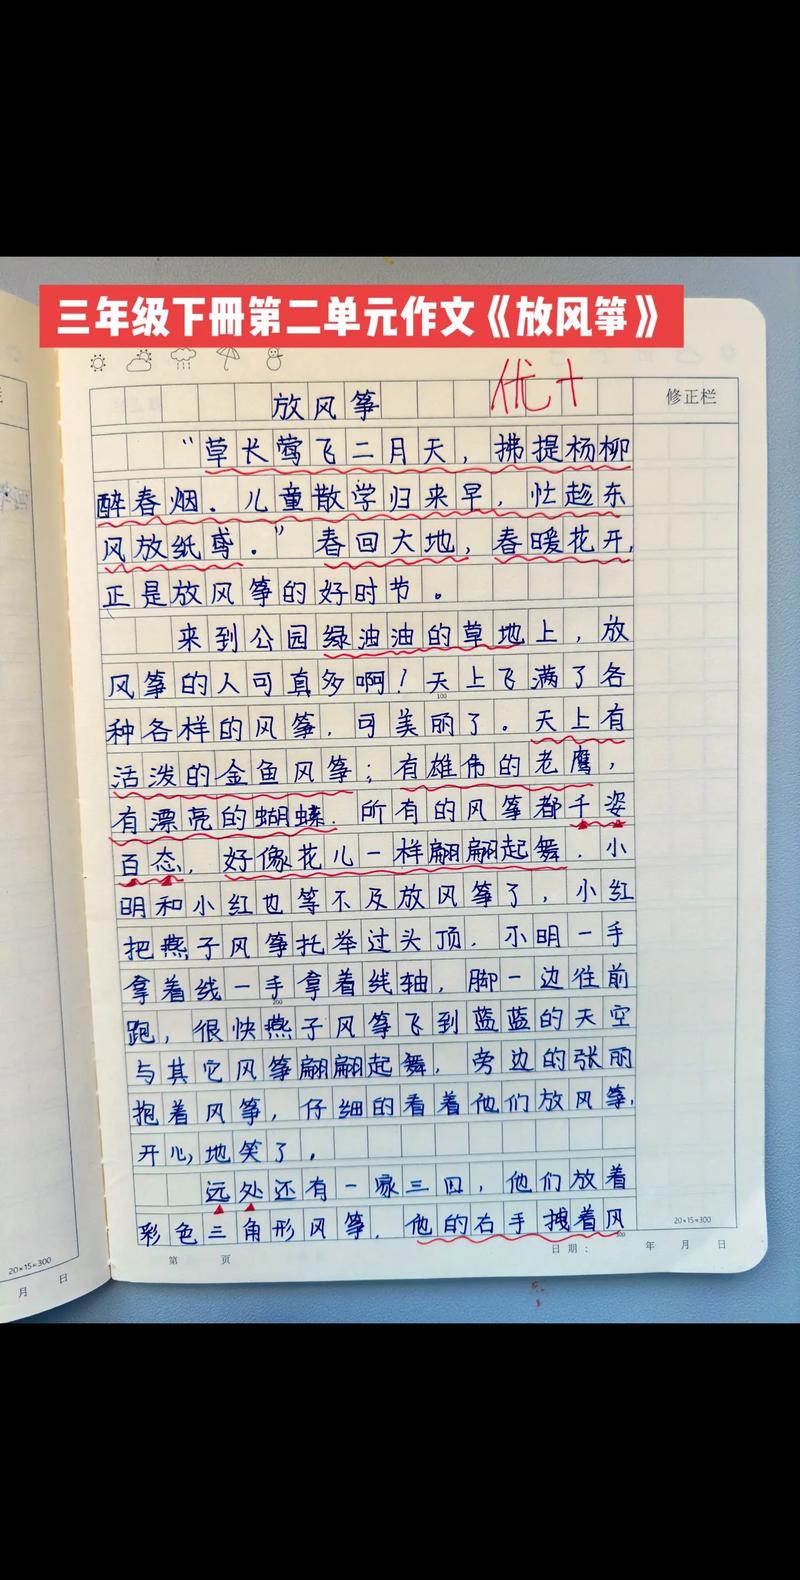 三年级下册第二单元作文《放风筝》
优+
放风筝
修正栏
“草长莺飞二月天，拂提杨柳
醉春烟．儿童散学归来早，忙趁东
风放纸鸢．”春回大地，春暖花开，
正是放风筝的好时节。
来到公园绿油油的草地上，放
风筝的人可真多啊！天上飞满了各
100
种各样的风筝，可美丽了。天上有
活泼的金鱼风筝；有雄伟的老鹰，
有漂亮的蝴蝶．所有的风筝都千姿
百态，好像花儿一样翩翩起舞．小
明和小红也等不及放风筝了，小红
把燕子风筝托举过头顶．小明一手
拿着线一手拿着线轴，脚一边往前
200
跑，很快燕子风筝飞到蓝蓝的天空
与其它风筝翩翩起舞．旁边的张丽
抱着风筝，仔细的看着他们放风筝，
开心地笑了．
远处还有一家三口，他们放着
彩色三角形风筝．他的右手拽着风
300
20×15=300
第 页
日期： 年 月 日
20×15=300
月 日